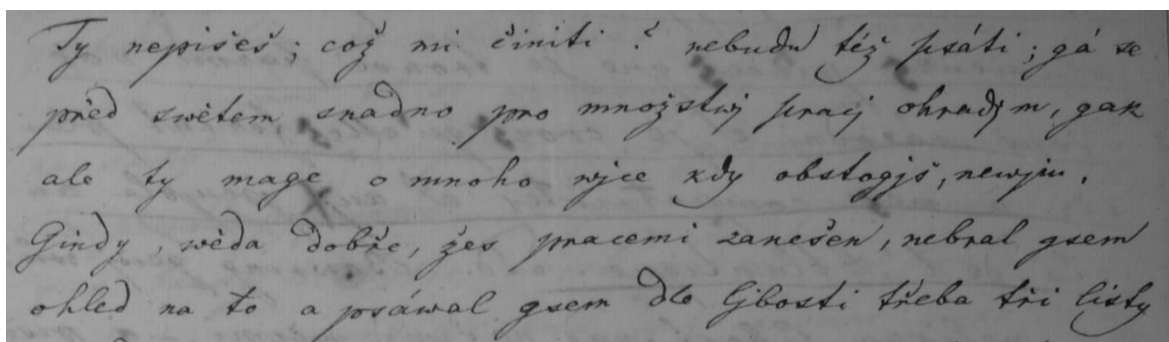 Ty nepišeš; což mi činiti? nebudu též psáti; gá se
před swětem snadno pro množstwj pracj ohradjm, gak
ale ty mage o mnoho wjce kdy obstogjš, newjm.
Gindy, wěda dobře, žes pracemi zanešen, nebral gsem
ohled na to a psáwal gsem dlo ljbosti třeba tři listy